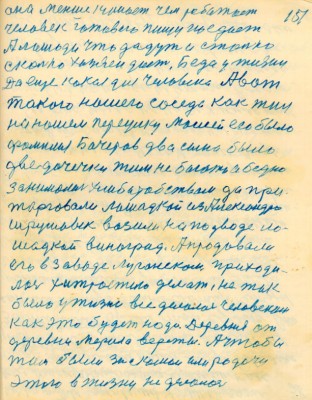 она меньше кушает чем работает 151
человек готового пищу поедает
А лошади что дадут и столько
сколько хозяин дает, Беда у жизни
Да еще какая для человека А вот
такого нашего соседа как жил
на нашем переулку Мосией его было
фамилия Бочеров два сына было
две дочечки жили не богато а бедно
занимались хлибаробством да при
торговали лошадкой из Александро
возили на подводе ло-
шадкой виноград. А продовали
его в заводе Луганском, приходи-
лось хитростью делат, не так
было у жизни все делалося человеком
как это будет нода Деревня от
деревни версты. А чтобы
там были знакомои или родичи
этого в жизни не делалося